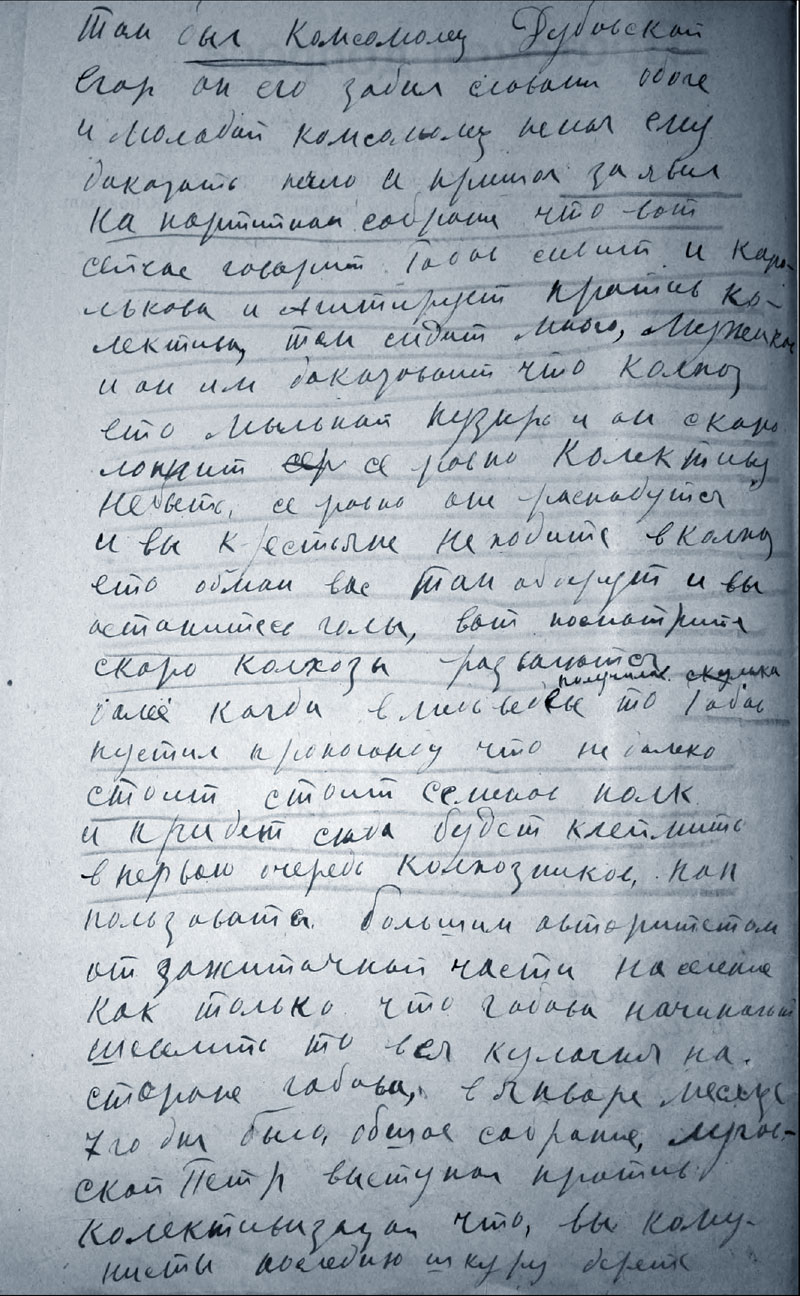 Там был Комсомолец Дубовской
Егор он его забил словами
и молодой комсомолец немог ему
даказать нечего и пришол заявил
на партитном собрание что вот
сейчас говорит Габов сидит и Каро-
лькова и Агитирует против ко-
лектива, там сидит много, Мужиков
и он им даказоваит что колхоз
ето мыльнай пузырь и он скоро
лопнит се ровно Колективу
Небыть, се ровно оне распадутся
и вы крестьяне неходите в колхоз
ето обман вас там оберут и вы
останитесь голы, вот посмотрите
скоро колхозы разваются
далее Когда получилос то Габов
пустил пропоганду что не далеко
стоит стоит Семенов полк
и придет сюда будет клеймить
в первою очередь Колхозников,
пользовата большим авторитетом
от зажиточный части население
Как только что габова начинают
шевелить то вся кулачия на
стороне габова, в январе месяце
7го дня было, общое собрание,
ской Петр выступал против
Колективизации что, вы кому-
нисты последнию шкуру берете